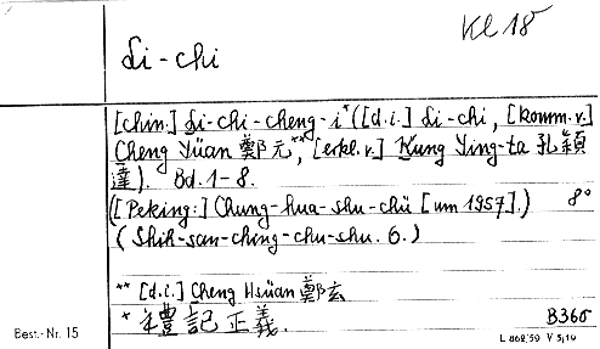 Kl 18
Li-chi
[chin.] Li-chi-cheng-i* ([d.i.] Li-chi, [komm. v.]
Cheng Yüan 鄭元**, [erkl. v.] Kung Ying-ta 孔穎
達). Bd. 1-8.
([Peking:] Chung-hua-shu-chü [um 1957].) 8°
(Shih-san-ching-chu-shu. 6.)
** [d.i.] Cheng Hsüan 鄭玄
* 禮記正義.
B366
Best.-Nr. 15
L 868/59 V 5/19